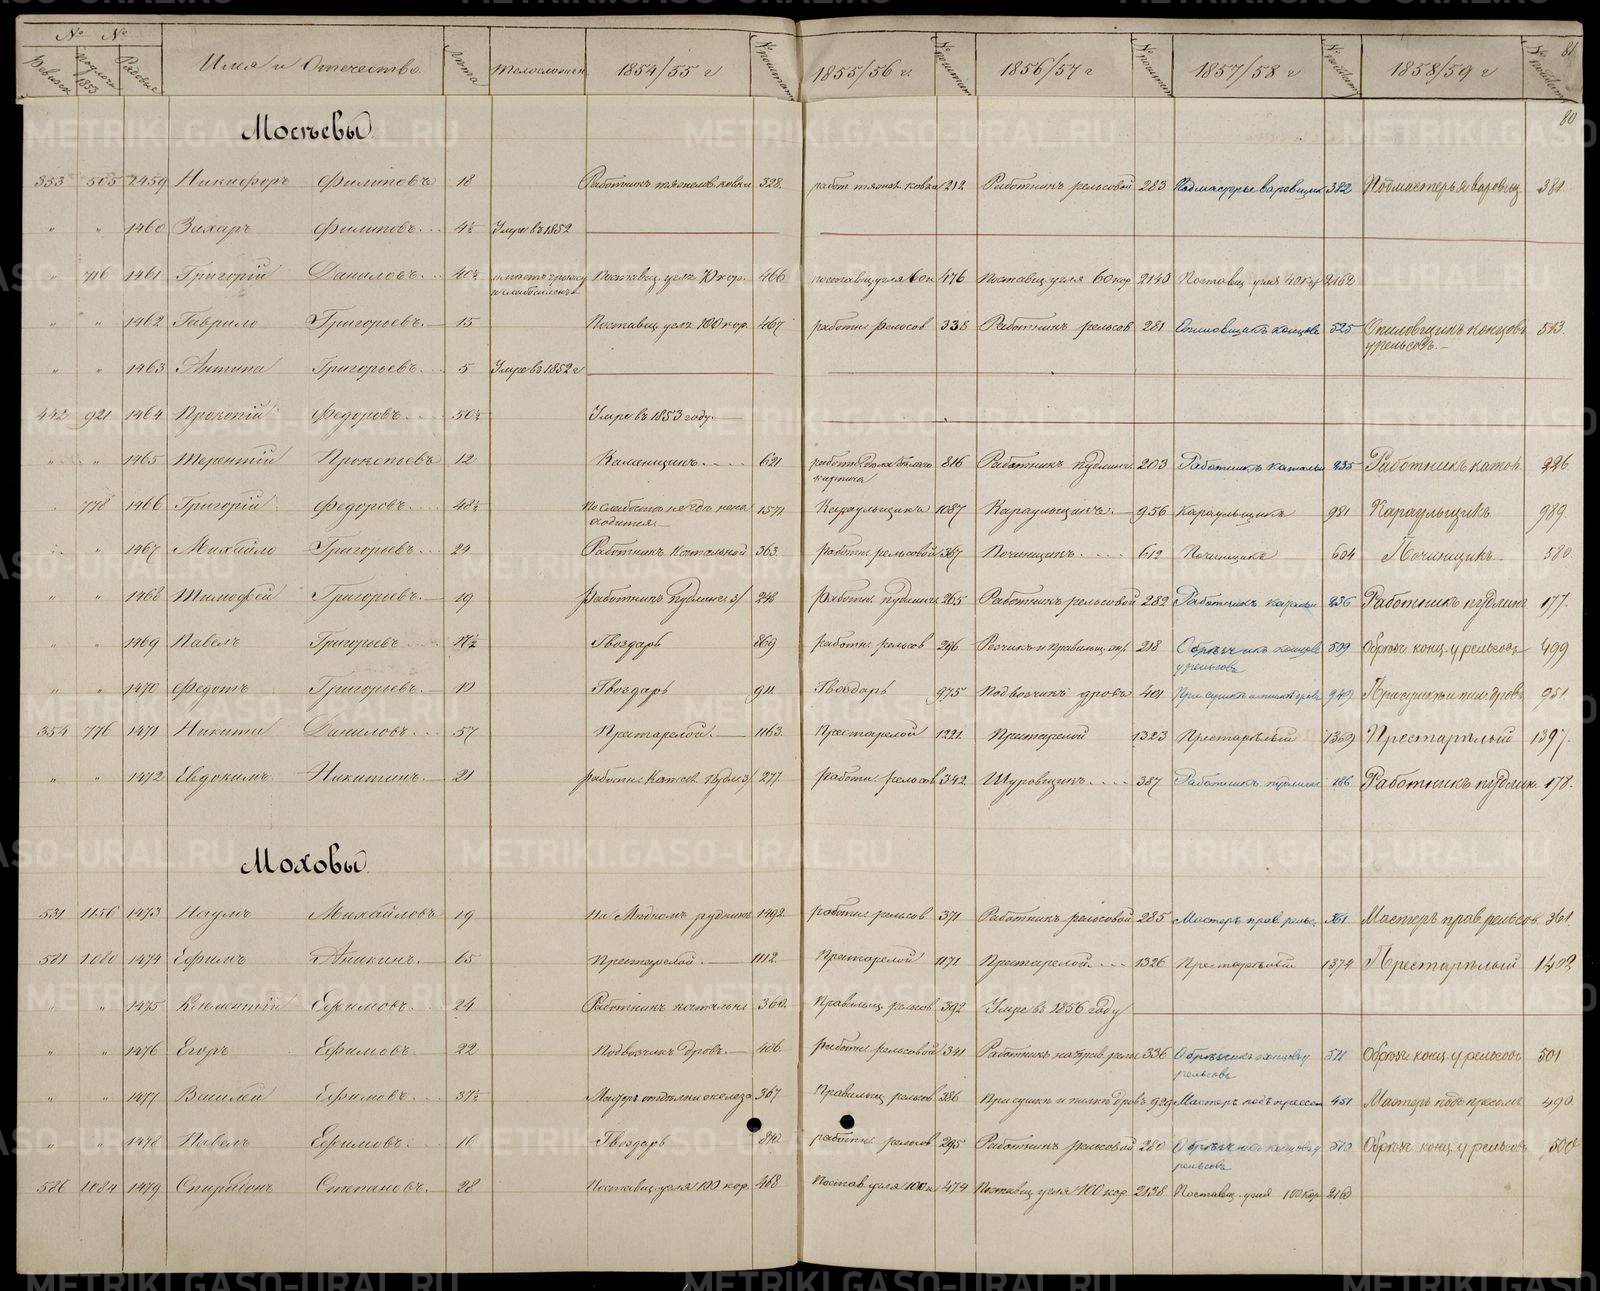 № № Имя и Отчество Лета Телосложен. 1854/55 г 1855/56 г. 1856/57 г 1857/58 г 1858/59 г 81
80
Мосѣевы
353 505 1459 Никифоръ Филиповъ 18 328. 212 Работникъ рельсовой 283 Подмастерье варовщик 382 Подмастерья варовщ 381
" " 1460 Захаръ Филиповъ. Умре въ 1852
" 716 1461 Григорій Даниловъ. Поставщ. угля 70 кор. 466 поставщ угля 60 к 476 Поставщ. угля 60 кор 2140 Поставщ угля 40 кор 2162
" " 1462 Гаврило Григорьевъ. 15 Поставщ. угля 100 кор. 467 работн рельсов 338 Работникъ рельсов 281 Опиловщикъ концовъ 525 Опиловщикъ концовъ 513.
у рельсовъ.
" " 1463 Антипа Григорьевъ. 5 Умре въ 1852 г
442 921 1464 Прокопій Федоровъ. Умре въ 1853 году.
" " 1465 Терентій Прокопьевъ 12 Каменщикъ. 621 816 Работникъ пудлинг. 203 Работникъ катальн 235 Работникъ катал. 226
кирпича
" 778 1466 Григорій Федоровъ. 1571 Караульщикъ 1087 Караульщикъ. 956 Караульщикъ 981 Караульщикъ. 989.
" " 1467 Михайло Григорьевъ. 24 Работникъ катальной 363. работн. рельсовой 367 Починщикъ. 612 Починщикъ 604 Починщикъ 580.
" " 1468 Тимофей Григорьевъ. 19 работникъ пудлинг. 248 работн. пудлинг 265 Работникъ рельсовой 282 Работникъ катальн 236 Работникъ пудлинг 177.
" " 1469 Павелъ Григорьевъ. Гвоздарь 869 работн. рельсов 296 Резчикъ и правильщ. 218 Обрѣзчикъ концовъ 509 Обрѣзч конц. у рельсовъ 499
у рельсовъ
" " 1470 Федотъ Григорьевъ. 10 Гвоздарь 911 Гвоздарь 975 Подвозчикъ дровъ 401 При сушкѣ и пилкѣ дровъ 949 При сушкѣ и пил. дровъ 951.
354 776 1471 Никита Даниловъ. 57 Престарелой. 1163. Престарелой 1221 Престарелой 1323 Престарѣлый 1369 Престарѣлый 1397.
" " 1472 Евдокимъ Никитинъ. 21 277. работн. рельсов 342 Шуровщикъ. 387 Работникъ пудлинг 186 Работникъ пудлин. 178.
Моховы
531 1156 1473 Наумъ Михайловъ 19 На Мѣдномъ рудникѣ 1492. работн рельсов 371 Работникъ рельсовой 285 Мастеръ прав. рельс. 361 Мастеръ прав. рельсов. 361.
581 1080 1474 Ефимъ Аникинъ. 65 Престарелой. 1112. Престарелой 1171 Престарелой. 1326 Престарѣлый 1374 Престарѣлый 1402
" " 1475 Клементій Ефимовъ. 24 Работникъ катальни 360. Правильщ. рельсов 392 Умре въ 1856 году
" " 1476 Егоръ Ефимовъ. 22 Подвозчикъ дровъ. 406. работн. рельсовой 341 Работникъ на прав. рельс 336 Обрѣзчикъ концовъ у 511 Обрѣзч. конц. у рельсовъ 501
рельсовъ
" " 1477 Василей Ефимовъ. Мастеръ отдѣлки железа 367. Правильщ рельсов 386 При сушкѣ и пилкѣ дровъ 929 Мастеръ подъ прессом 451 Мастеръ подъ прессомъ 490
" " 1478 Павелъ Ефимовъ. 16 Гвоздарь 840. работн. рельсов 295 Работникъ рельсовой 280 Обрѣзчикъ концовъ у 510 Обрѣзч. конц. у рельсовъ 500
рельсовъ
586 1084 1479 Спиридонъ Степановъ. 28 Поставщ. угля 100 кор. 468 Постав. угля 100 к 474 Поставщ угля 100 кор. 2138 Поставщ. угля 100 кор. 2160
METRIKI.GASO-URAL.RU